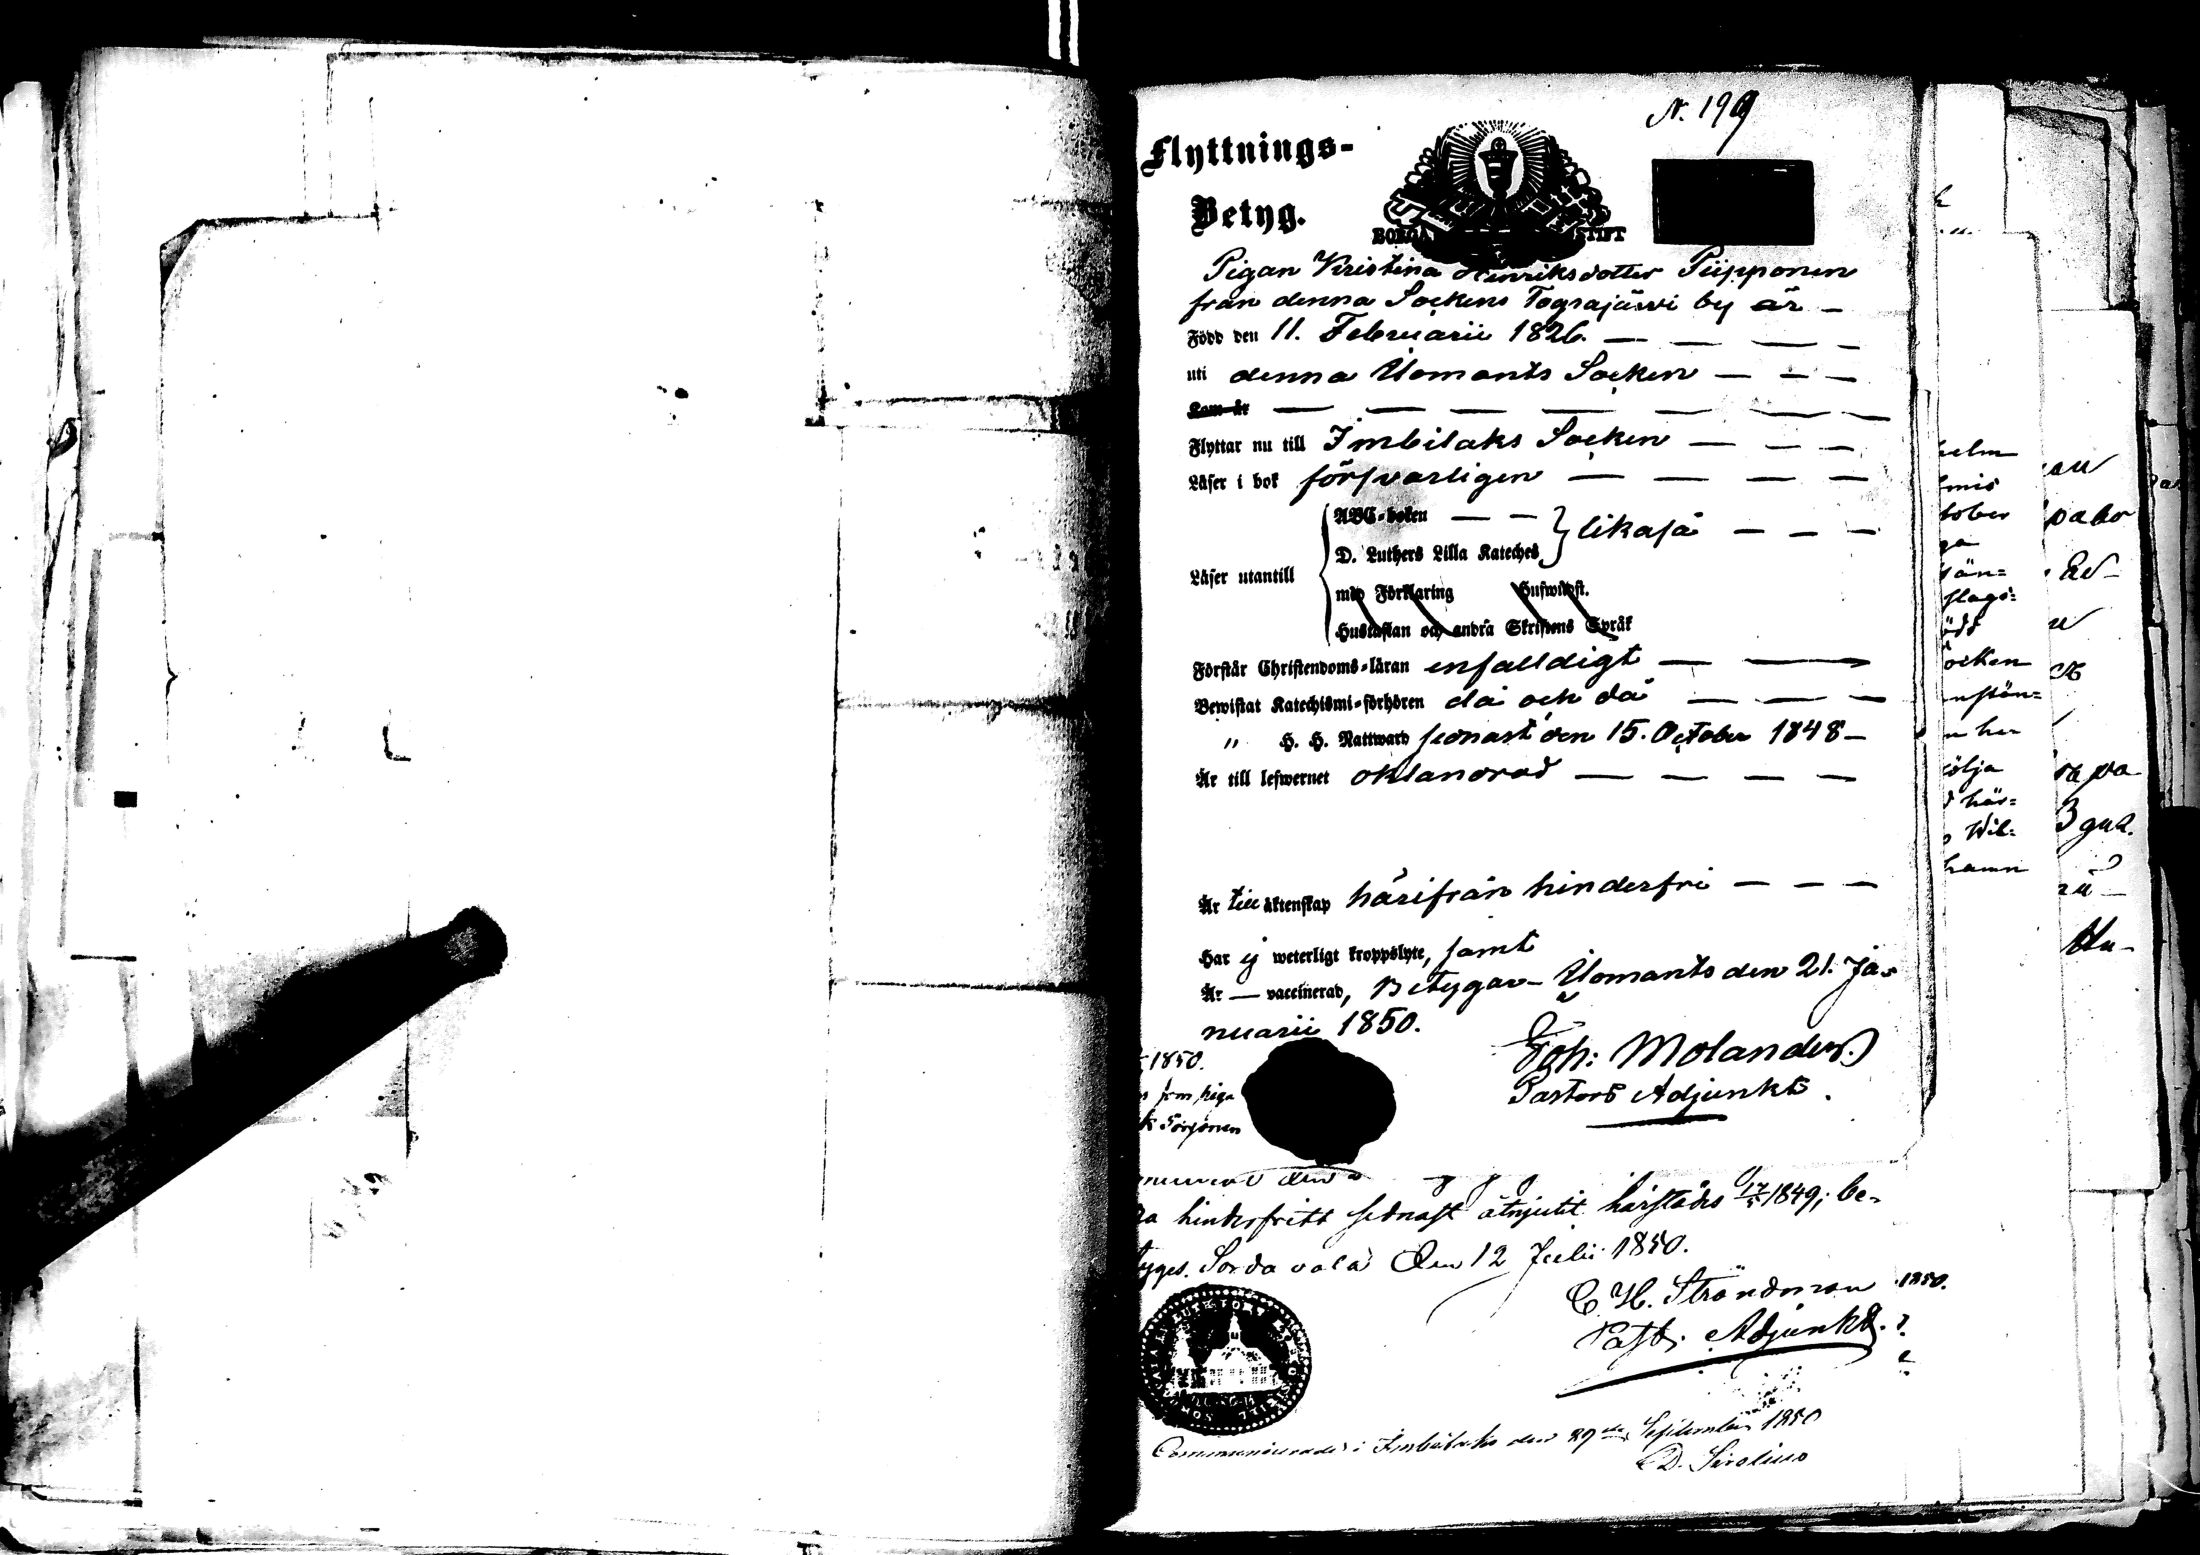 N. 199
Flyttnings-
Betyg.
BORGÅ STIFT
Pigan Kristina Hinriksdotter Piipponen
från denna Sockens Tograjärvi by är –
Född den 11. Februarii 1826. — — — –
uti denna Ilomants Socken — — –
Kom är — — — — — — —
Flyttar nu till Imbilaks Socken — — — –
Läser i bok försvarligen — — — –
ABC-boken — –
likaså — — –
D. Luthers Lilla Kateches
Läser utantill
med Förklaring Huswudst.
Hustaflan och andra Skriftens Språk
Förstår Christendoms-läran enfalldigt — —
Bewistat Katechismi-förhören då och då — — –
" H. H. Nattward sednast den 15. October 1848 –
Är till lefwernet oklandrad — — — –
Är till äktenskap härifrån hinderfri — — –
Har ej weterligt kroppslyte, samt
Är — vaccinerad, Betygar – Ilomants den 21. Ja-
nuarii 1850.
Joh: Molander.
Pastors Adjunkt.
1850.
som piga
Sorjonen
hinderfritt sednast åtnjutit härstädes 17/5 1849; be-
tyges. Sordavala Den 12 Julii 1850.
C. H. Strandman
Past. Adjunkt.
1850.
Communicerades i Imbilaks den 29de September 1850
D. Sirelius
helm
mis
tober
ga
slags=
ödd
ocken
n her
följa
d här=
Wil=
hamn